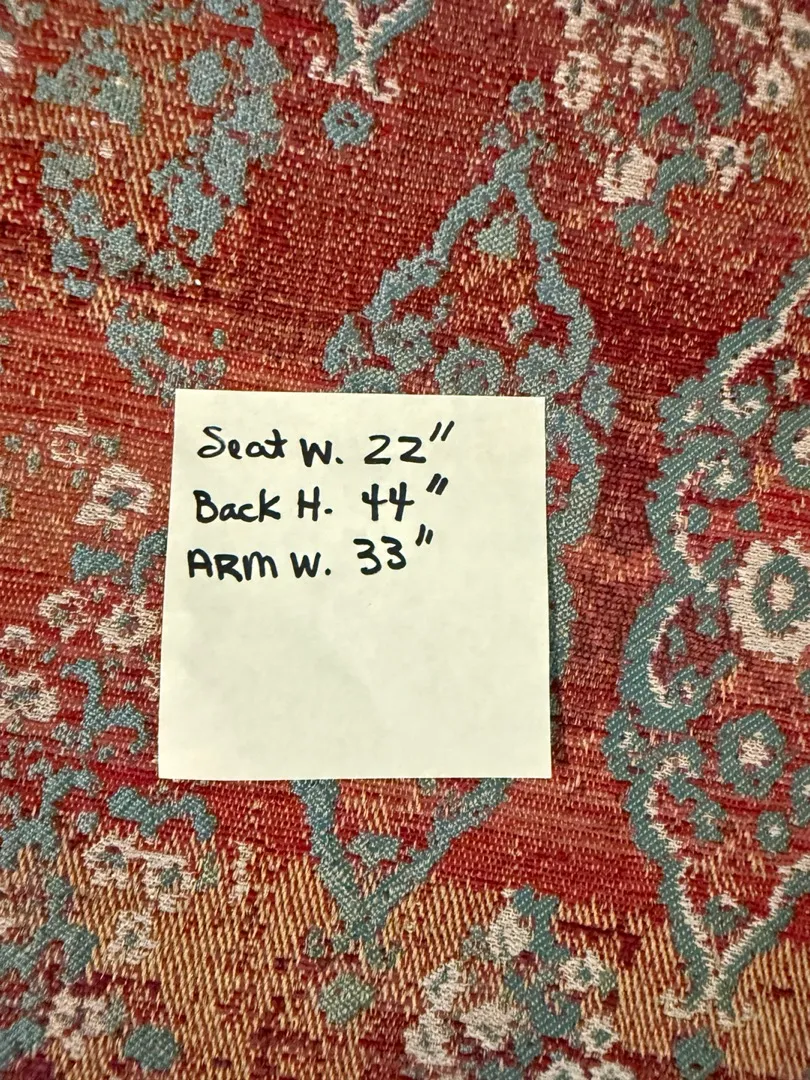 Seat W. 22"
Back H. 44"
ARM W. 33"